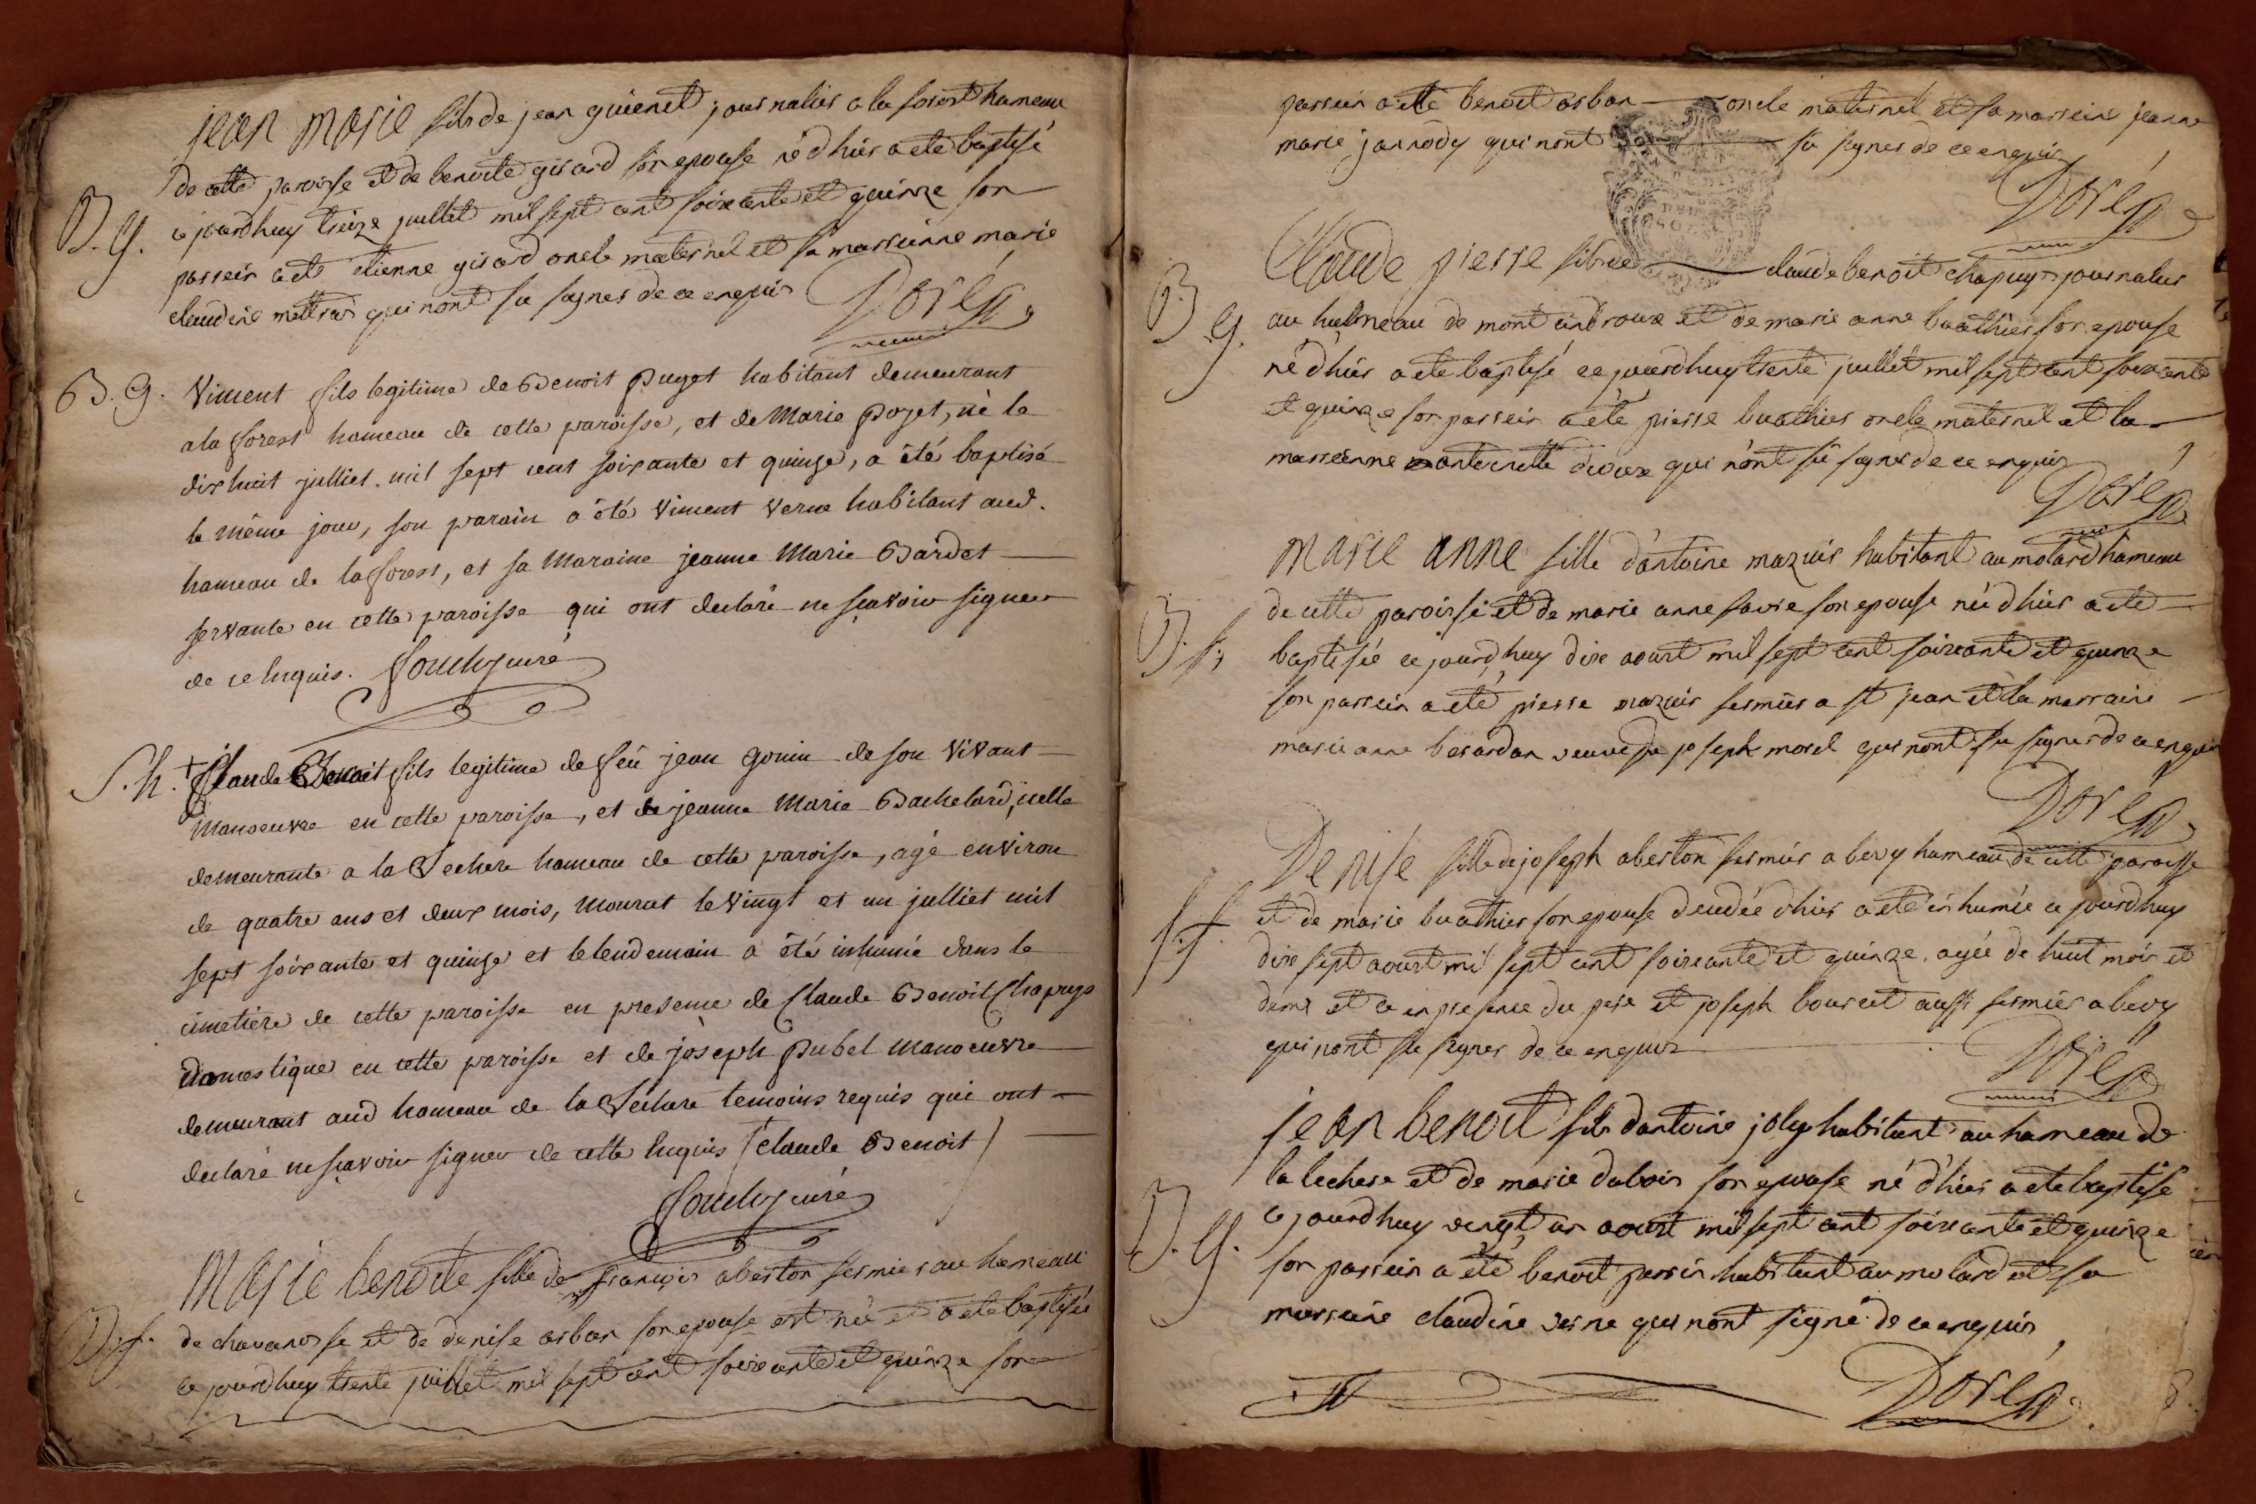 jean marie fils de jean guienet journalier a la forest hameau
de cette paroisse et de benoite girard son epouse né d'hier a ete baptisé
B. G.
ce jourdhuy treize juillet mil sept cent soixante et quinze son
parrein a ete etienne girard oncle maternel et sa marreinne marie
claudine mettrai qui nont su signer de ce enquis Doré
B. G. Vincent fils legitime de Benoit Puget habitant demeurant
a la forest hameau de cette paroisse, et de Marie poget, nè le
dix huit julliet mil sept cent soixante et quinze, a été baptisé
le même jour, son parain a été Vincent Verne habitant aud.
hameau de la forest, et sa Maraine jeanne Marie Bardet
servante en cette paroisse qui ont declaré ne sçavoir signer
de ce Enquis. curé
S. h. + Claude Benoit fils legitime de feu jean gonin de son Vivant
Manoeuvre en cette paroisse, et de jeanne Marie Bachelard, icelle
demeurante a la Lechere hameau de cette paroisse, agé environ
de quatre ans et deux mois, Mourut le Vingt et un julliet mil
sept soixante et quinze et le lendemain a été inhumé dans le
cimetiere de cette paroisse en presence de Claude Benoit Chapuys
domestique en cette paroisse et de joseph Pubel Manoeuvre
demeurant aud hameau de la Lechere temoins requis qui ont
declaré ne sçavoir signer de cette Enquis / + claude Benoit /
curé
Marie benoite fille de françois aberton fermier au hameau
B. f. de chavanosse et de denise arban son epouse est née et a ete baptisée
ce jourdhuy trente juillet mil sept cent soixante et quinze son
parrein a ete benoit arban oncle maternel et sa marreine jeanne
marie jannody qui nont su signer de ce enquis
Doré
Claude pierre fils de claude benoit chapuy journalier
B. G. au hameau de mont androux et de marie anne buathier son epouse
né d'hier a ete baptisé ce jourdhuy trente juillet mil sept cent soixante
et quinze son parrein a été pierre buathier oncle maternel et la
marreinne antoinette qui n'ont su signer de ce enquis
Doré
marie anne fille d'antoine mazuir habitant au molard hameau
de cette paroisse et de marie anne favre son epouse née d'hier a ete
B. f. baptisée ce jourd'huy dix aoust mil sept cent soixante et quinze
son parrein a eté pierre mazuir fermier a st jean et la marraine
marie anne berardan veuve de joseph morel qui nont su signer de ce enquis
Doré
Denise fille de joseph aberton fermier a bevy hameau de cette paroisse
S. f. et de marie buathier son epouse decedée d'hier a ete inhumée ce jourdhuy
dix sept aoust mil sept cent soixante et quinze. agée de huit mois et
demi et ce en presence du pere et joseph bourcet aussi fermier a bevy
qui nont su signer de ce enquis
Doré
jean benoit fils d'antoine joly habitant au hameau de
la lechere et de marie dubois son epouse né d'hier a ete baptisé
B. G. ce jourdhuy vengt un aoust mil sept cent soixante et quinze
son parrein a été benoit perrin habitant au molard et sa
marreine claudine verne qui nont signé de ce enquis
Doré